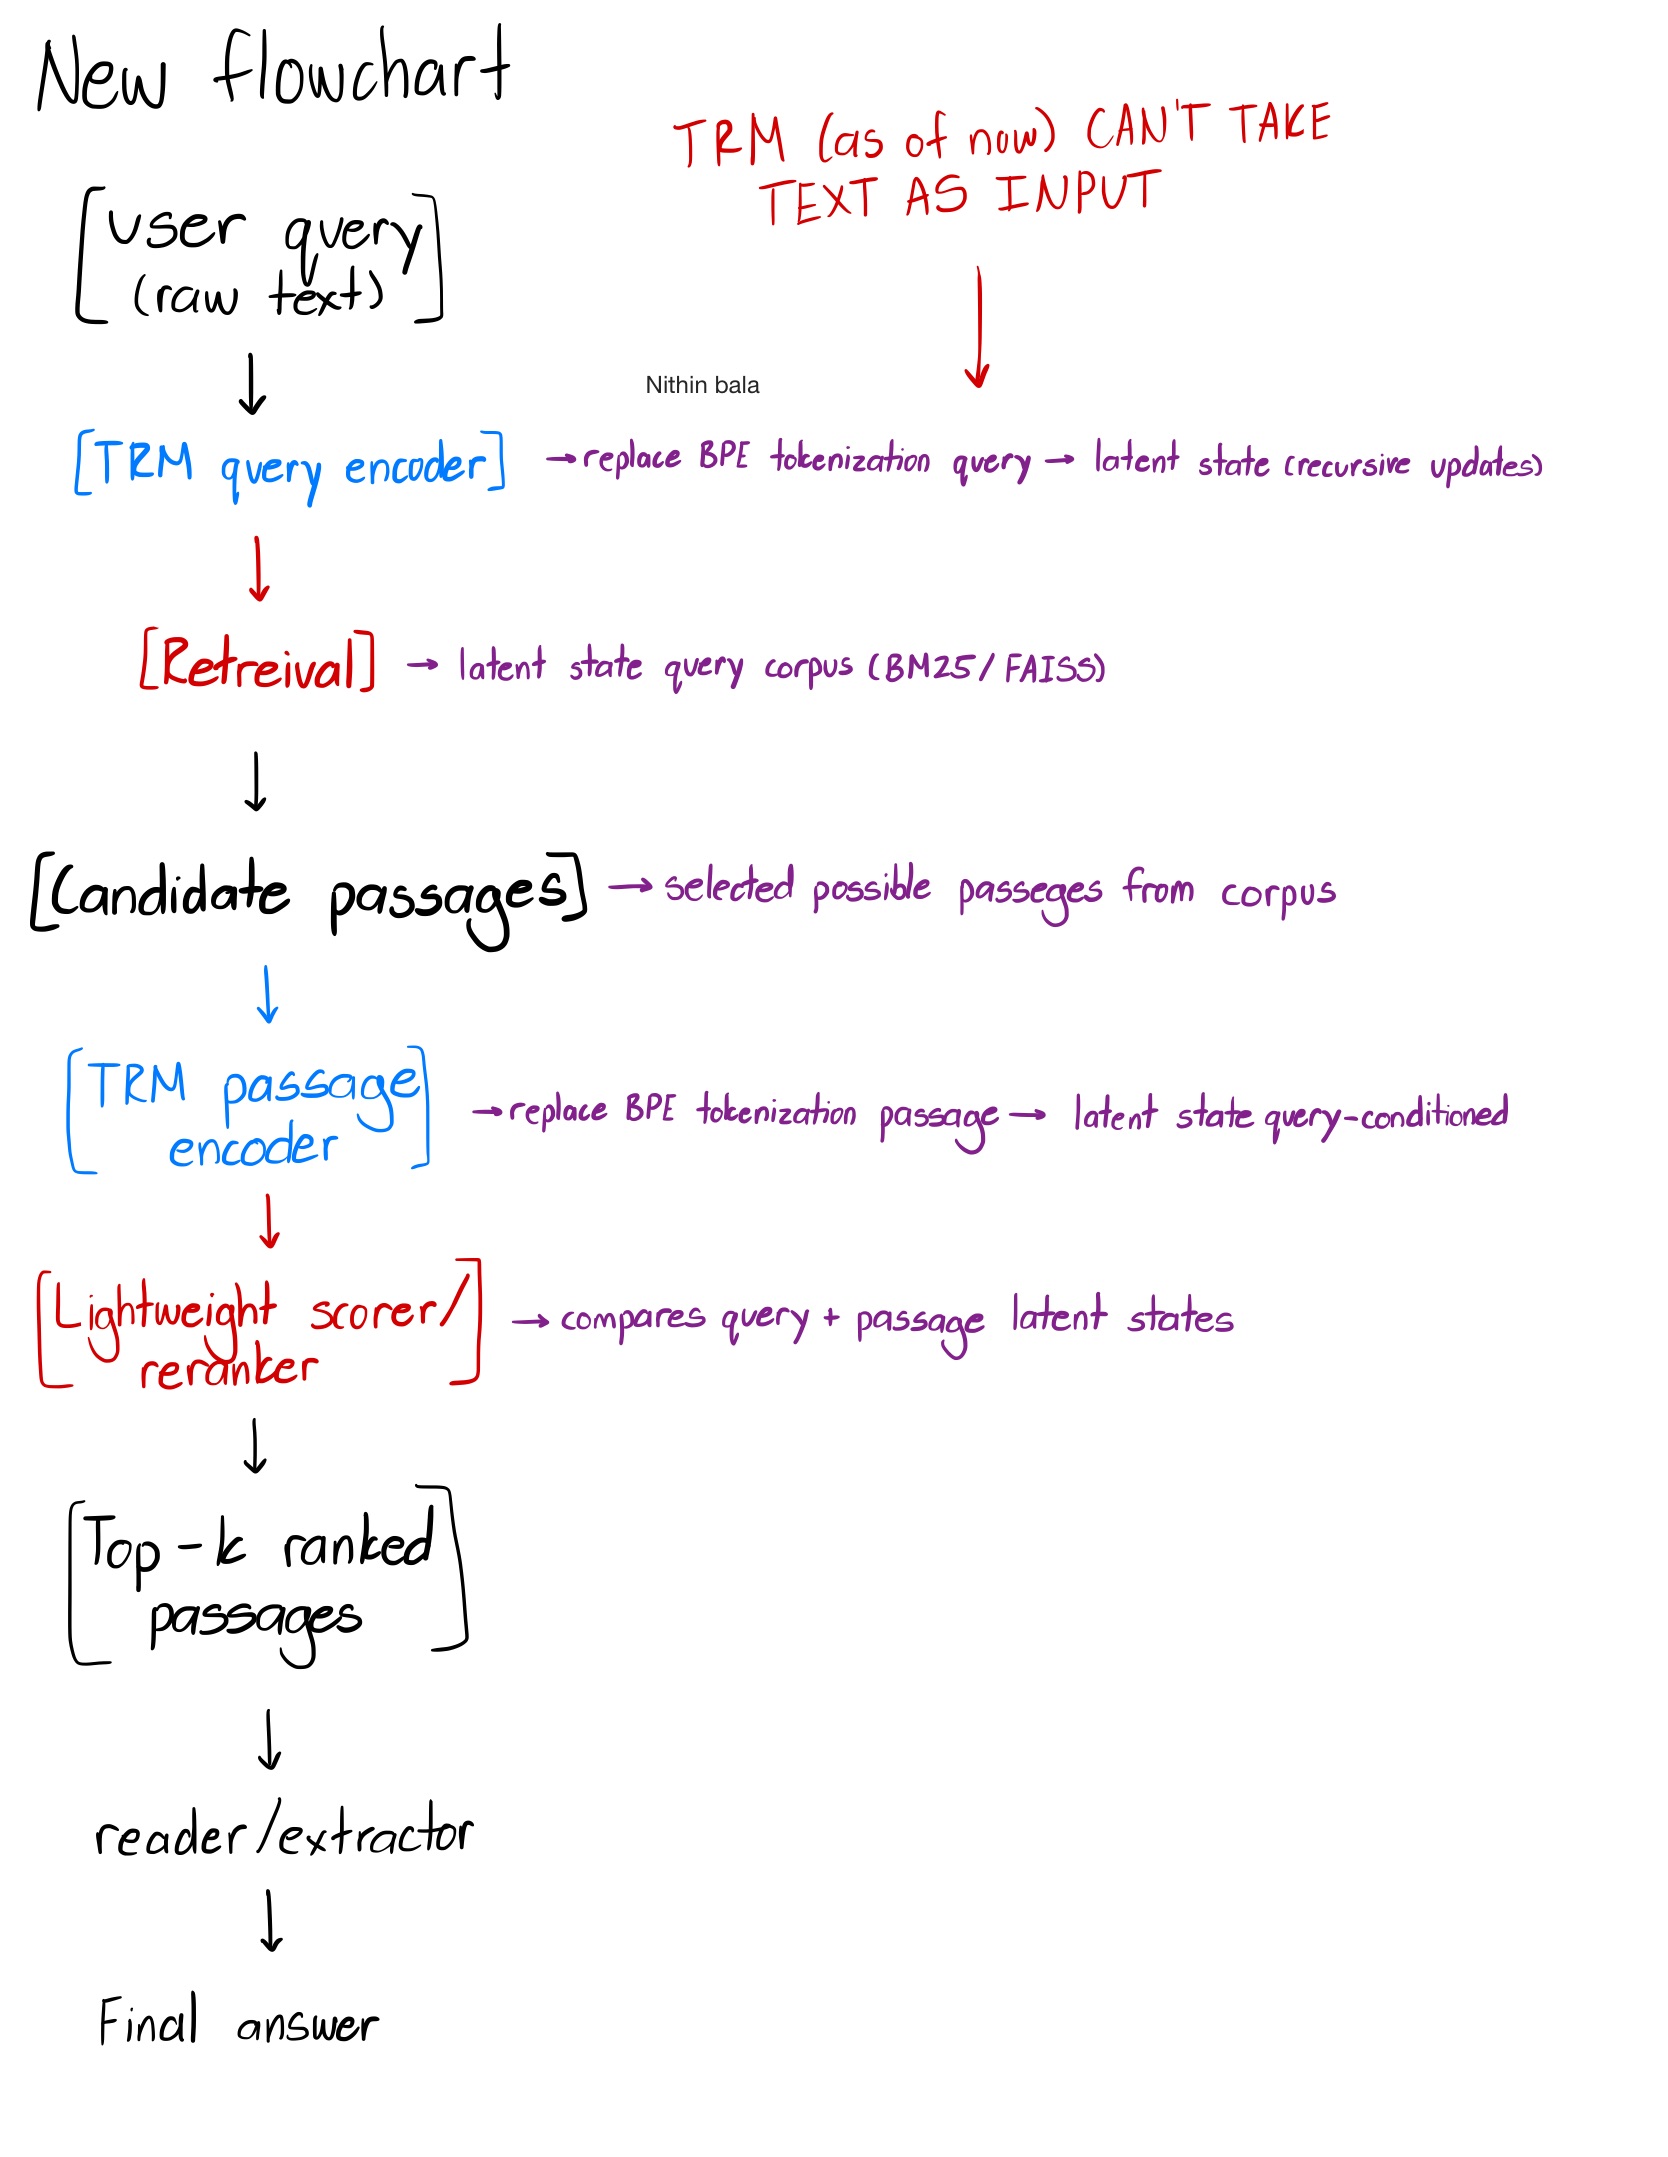 New flowchart
TRM (as of now) CAN'T TAKE
TEXT AS INPUT
[user query
(raw text)]
Nithin bala
[TRM query encoder] → replace BPE tokenization query → latent state (recursive updates)
[Retreival] → latent state query corpus (BM25/FAISS)
[Candidate passages] → selected possible passeges from corpus
[TRM passage
encoder] → replace BPE tokenization passage → latent state query-conditioned
[Lightweight scorer/
reranker] → compares query + passage latent states
[Top-k ranked
passages]
reader/extractor
Final answer